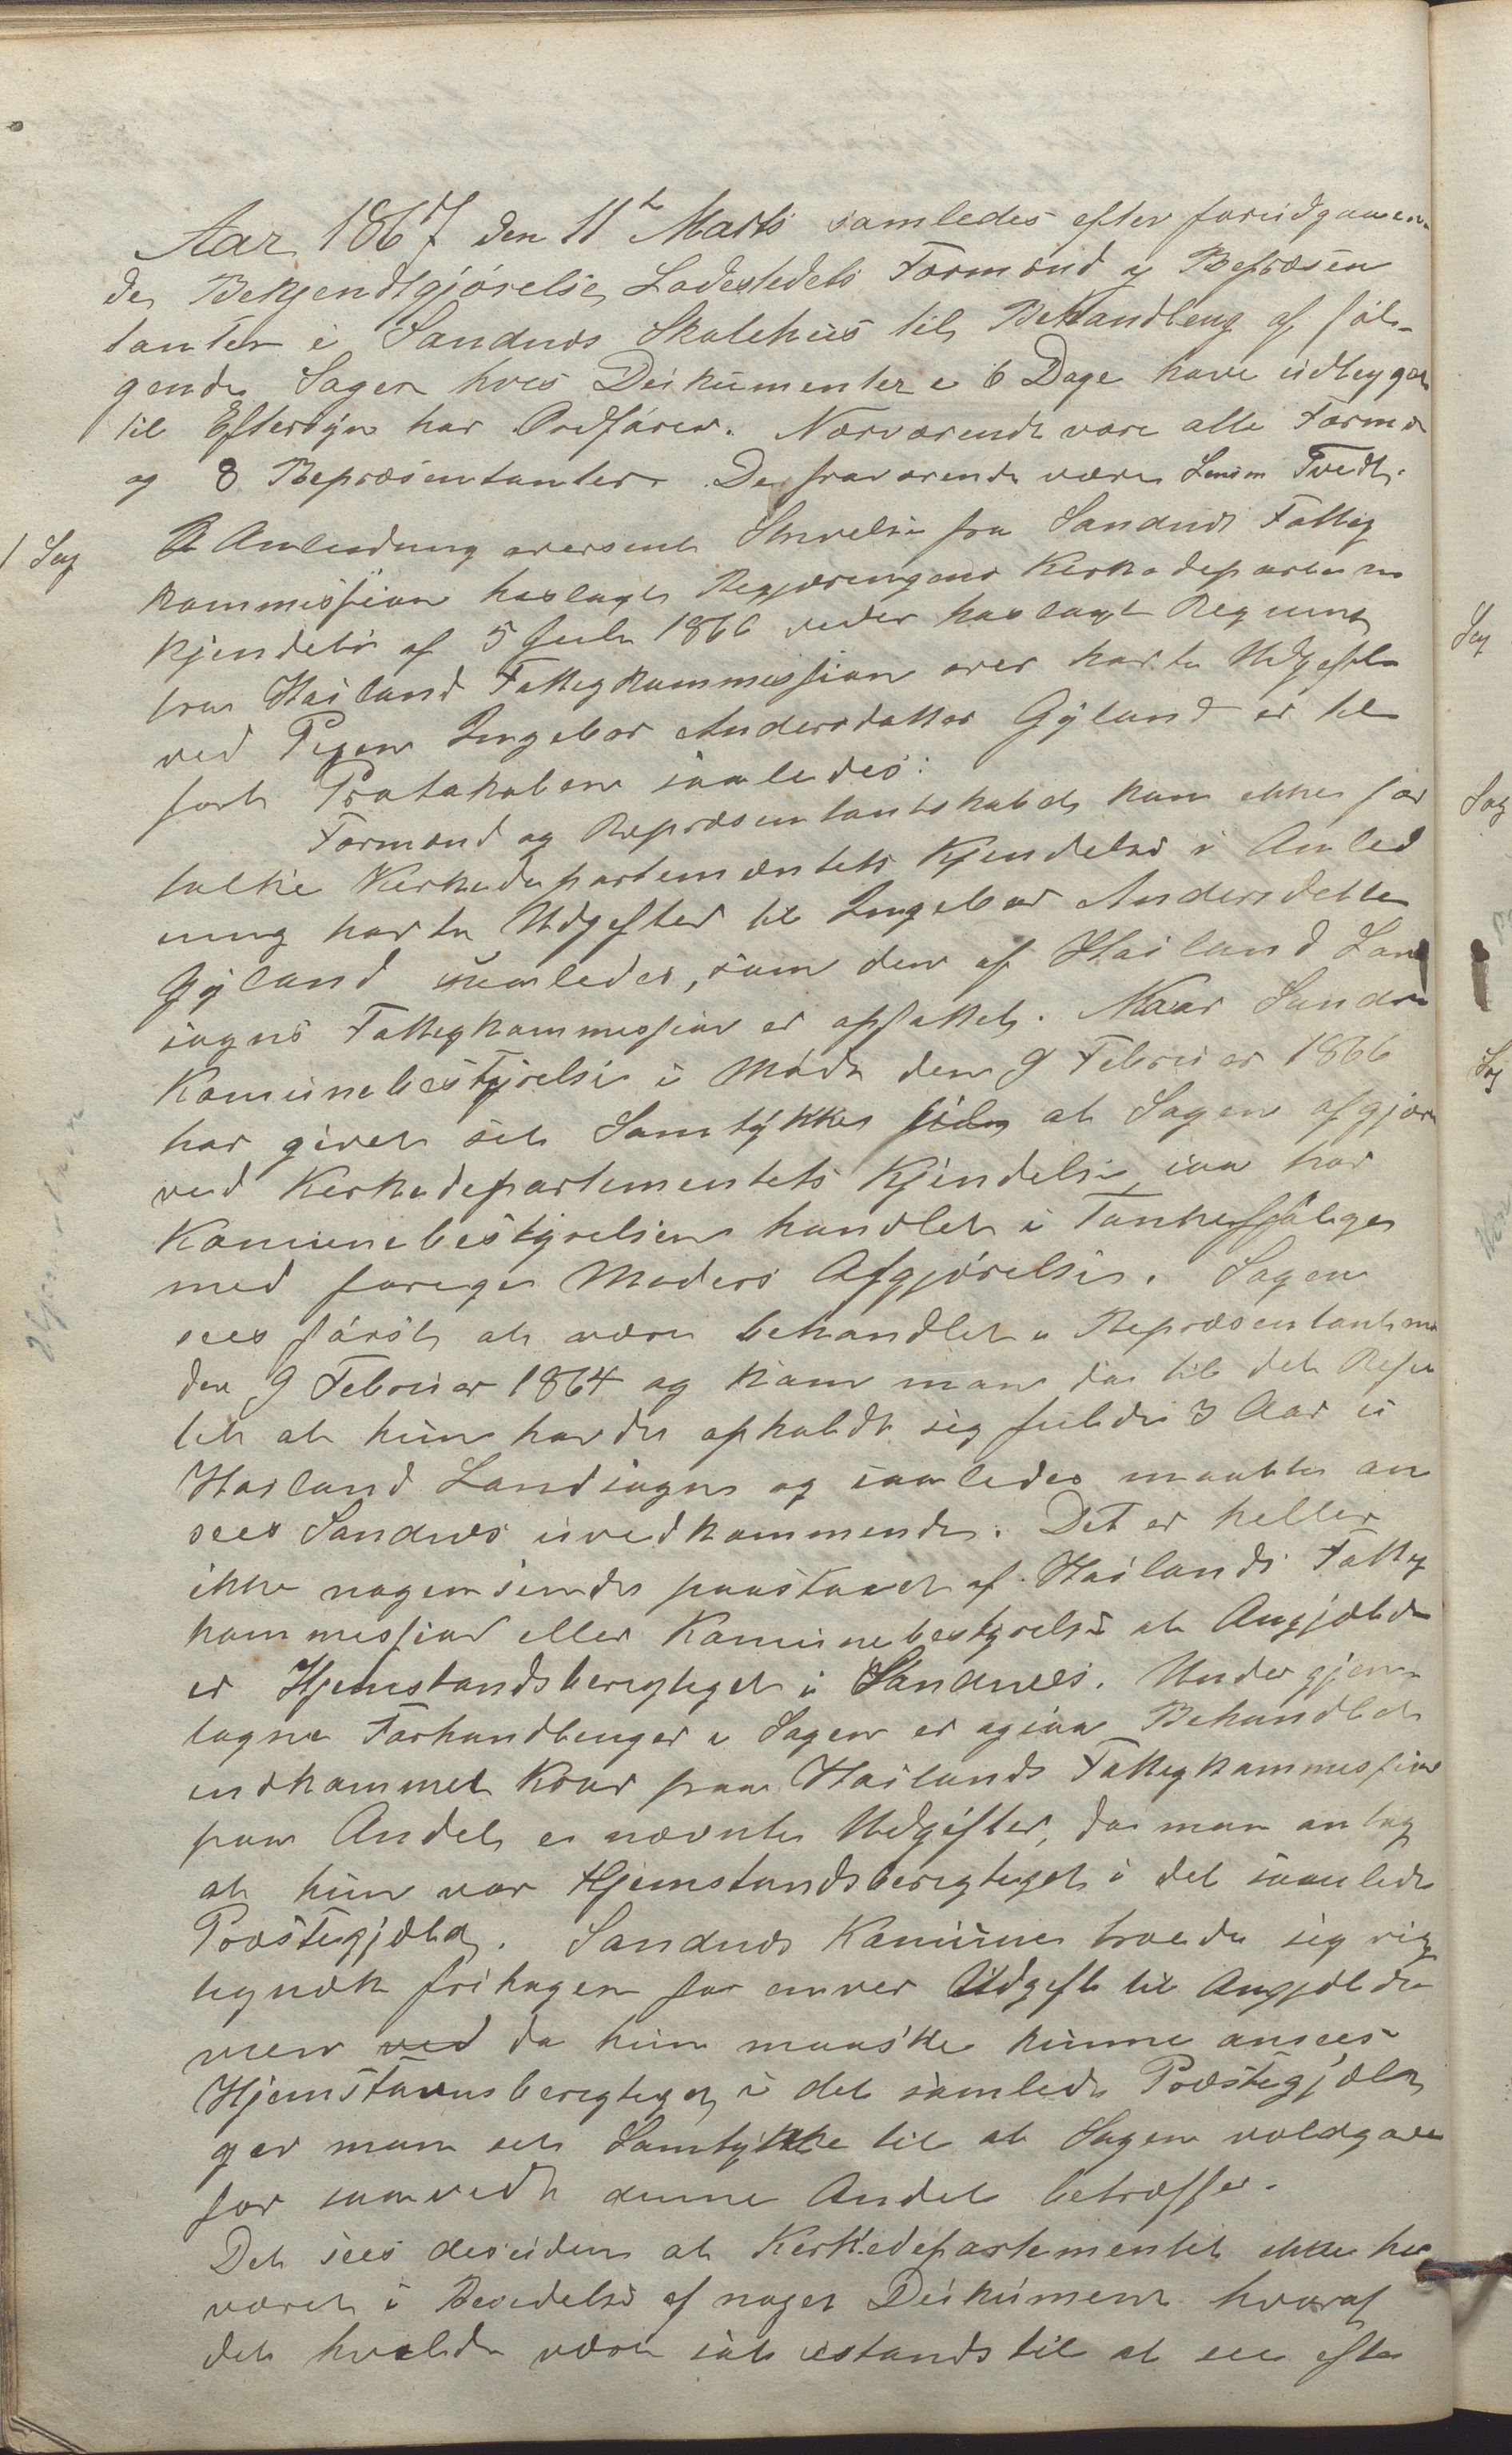 Aar 1867 den 11t Marts samledes efter forudgaaen
de Bekjendtgjörelse Ladestedets Formænd og Repræsen
tanter i Sandnæs Skolehus til Behandling af föl-
gende Sager hvis Dokumenter i 6 Dage have udligget
til Eftersyn hos Ordfören. Nærværende vare alle Formæ
og 8 Repræsentanter. De fraværende vare Tvedt.
1 Sag
I Anledning oversendt Skrivelse fra Sandnæs Fattig
kommission hoslagt Regjeringens Kirkedepartem
Kjendelse af 5 Juli 1866 vedhoslagt Regning
fra Høiland Fattigkommission over havte Udgifte
ved Pigen Ingebor Andersdatter Gyland er til
fört Protokolen saaledes:
Formænd og Repræsentantskabet kan ikke for
tolke Kirkedepartementets Kjendelse i Anled
ning havte Udgifter til Ingebor Andersdatter
Gyland saaledes, som den af Høiland Lan
sogns Fattigkommission er opfattet. Naar Sandnæ
Komunebestyrelse i Möde den 9 Februar 1866
har givet sit Samtykke til at Sagen afgjöre
ved Kirkedepartementets Kjendelse, saa har
Komunebestyrelsen handlet i Tankefölge
med forige Möders Afgjörelse. Sagen
sees först at være behandlet i Repræsentantmö
den 9 Februar 1864 og kom man da til det Resul
tat at hun havde opholdt sig fulde 3 Aar i
Høiland Landsogn og saaledes maatte an
sees Sandnæs uvedkommende. Det er heller
ikke nogensinde paastaaet af Høilands Fattig
kommission eller Komunebestyrelse at Angjældende
er Hjemstandsberigtiget i Sandnæs. Under gjen-
tagne Forhandlinger i Sagen er ogsaa Behandlet
indkommet Krav fra Høilands Fattigkommission
paa Andel i nævnte Udgifter, da man antog
at hun var Hjemstandsberigtiget i det samlede
Præstegjæld. Sandnæs Komune troede sig rig
tignok fritagen for enver Udgift til Angjældende
men ved da hun maaske kunne ansees
Hjemstavnsberigtiget i det samlede Præstegjæld
gav man sit Samtykke til at Sagen voldgaves
for saavidt denne Andel betræffer.
Det sees desuden at Kirkedepartementet ikke har
været i Besidelse af noget Dokument hvoraf
det kunde være sat istand til at see efter